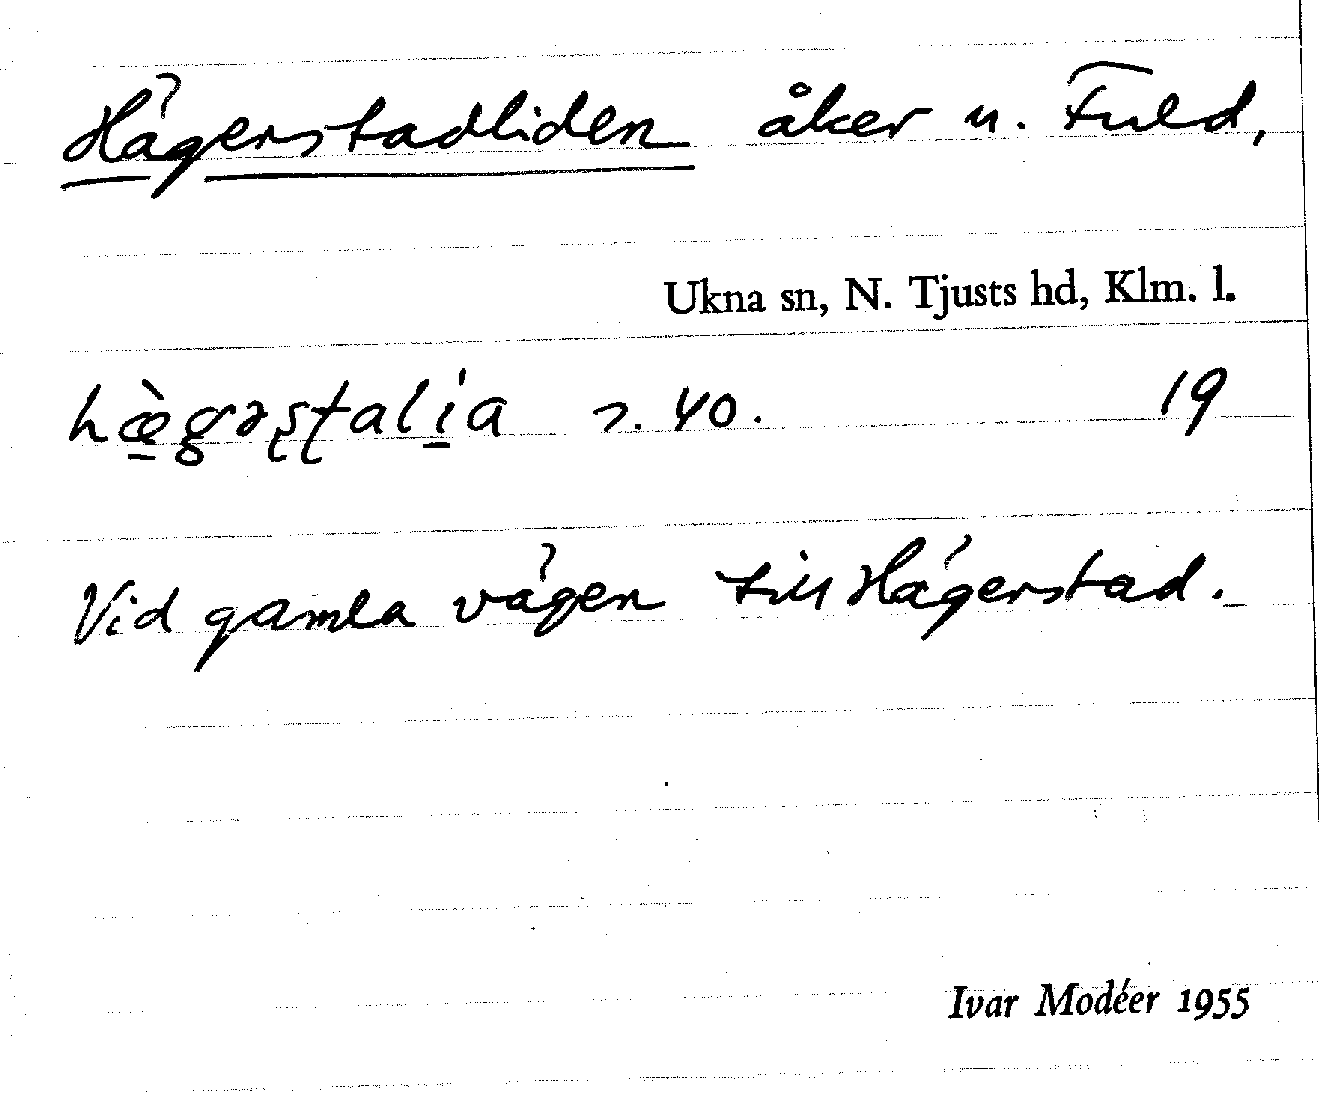 Hägerstadliden åker u. Fuld,
Ukna sn, N. Tjusts hd, Klm. l.
hæ̀gəʂʈalía 2. 40. 19
Vid gamla vägen till Hägerstad.
Ivar Modéer 1955